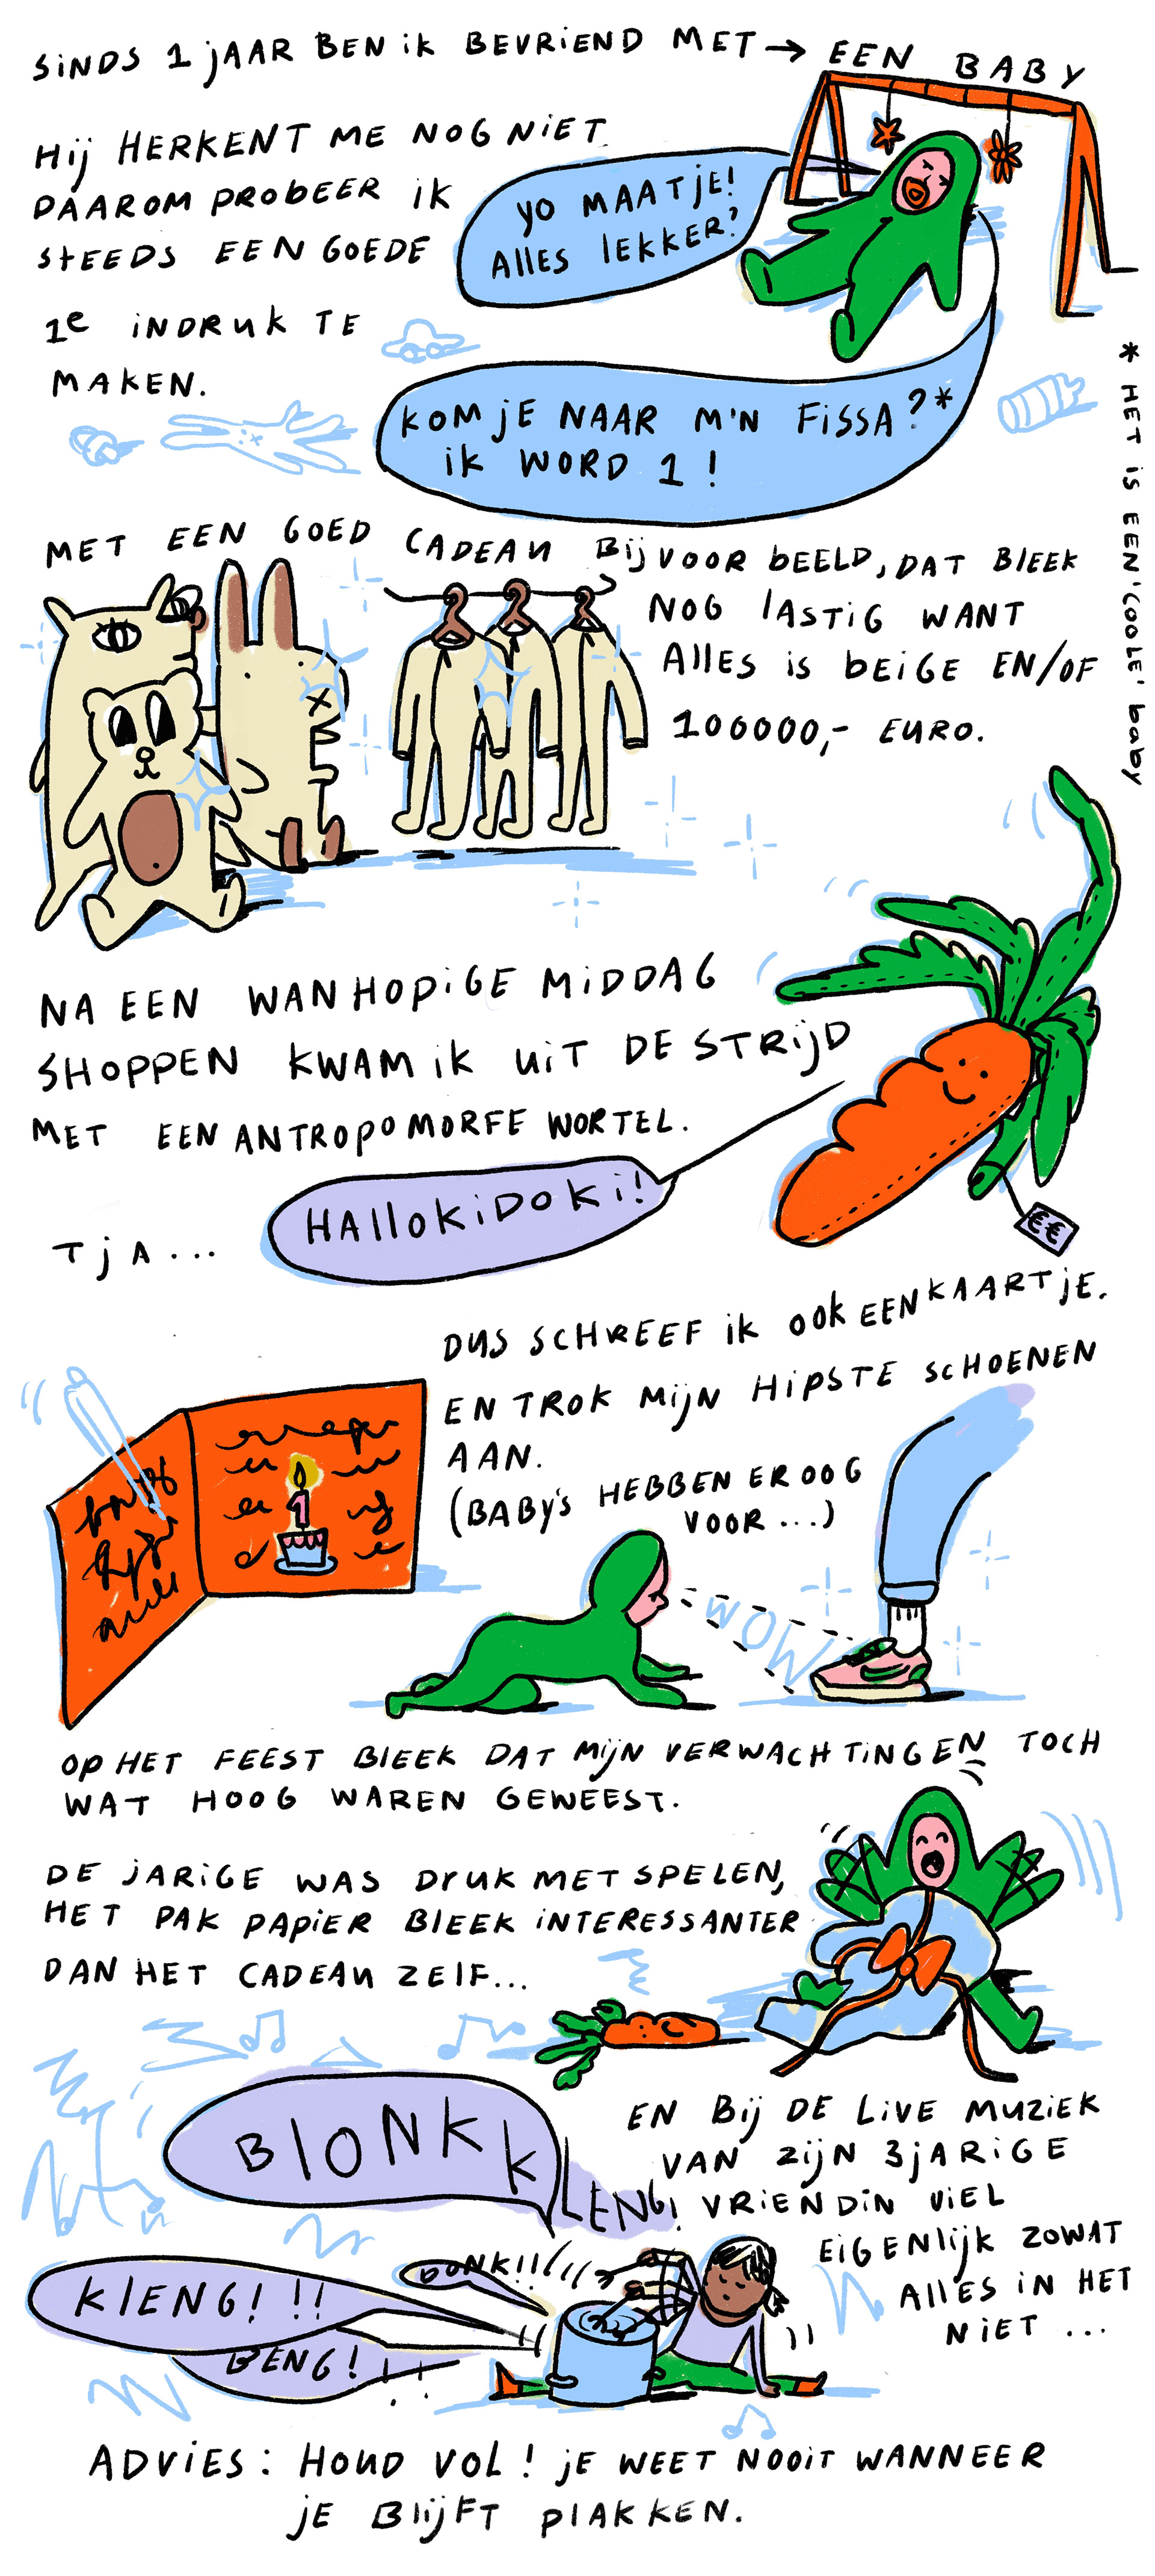 SINDS 1 JAAR BEN IK BEVRIEND MET → EEN BABY
HIJ HERKENT ME NOG NIET
DAAROM PROBEER IK
STEEDS EEN GOEDE
1e INDRUK TE
MAKEN.
YO MAATJE!
ALLES LEKKER?
KOM JE NAAR M'N FISSA?*
IK WORD 1!
* HET IS EEN 'COOLE' BABY
MET EEN GOED CADEAU BIJVOORBEELD, DAT BLEEK
NOG LASTIG WANT
ALLES IS BEIGE EN/OF
100000,- EURO.
NA EEN WANHOPIGE MIDDAG
SHOPPEN KWAM IK UIT DE STRIJD
MET EEN ANTROPOMORFE WORTEL.
HALLOKIDOKI!
TJA...
€€
DUS SCHREEF IK OOK EEN KAARTJE.
EN TROK MIJN HIPSTE SCHOENEN
AAN.
(BABY'S HEBBEN ER OOG
VOOR...)
1
WOW
OP HET FEEST BLEEK DAT MIJN VERWACHTINGEN TOCH
WAT HOOG WAREN GEWEEST.
DE JARIGE WAS DRUK MET SPELEN,
HET PAK PAPIER BLEEK INTERESSANTER
DAN HET CADEAU ZELF...
BLONKK
KLENG!
EN BIJ DE LIVE MUZIEK
VAN ZIJN 3 JARIGE
VRIENDIN VIEL
EIGENLIJK ZOWAT
ALLES IN HET
NIET...
DONK!!
KLENG!!!
BENG!
ADVIES: HOUD VOL! JE WEET NOOIT WANNEER
JE BLIJFT PLAKKEN.